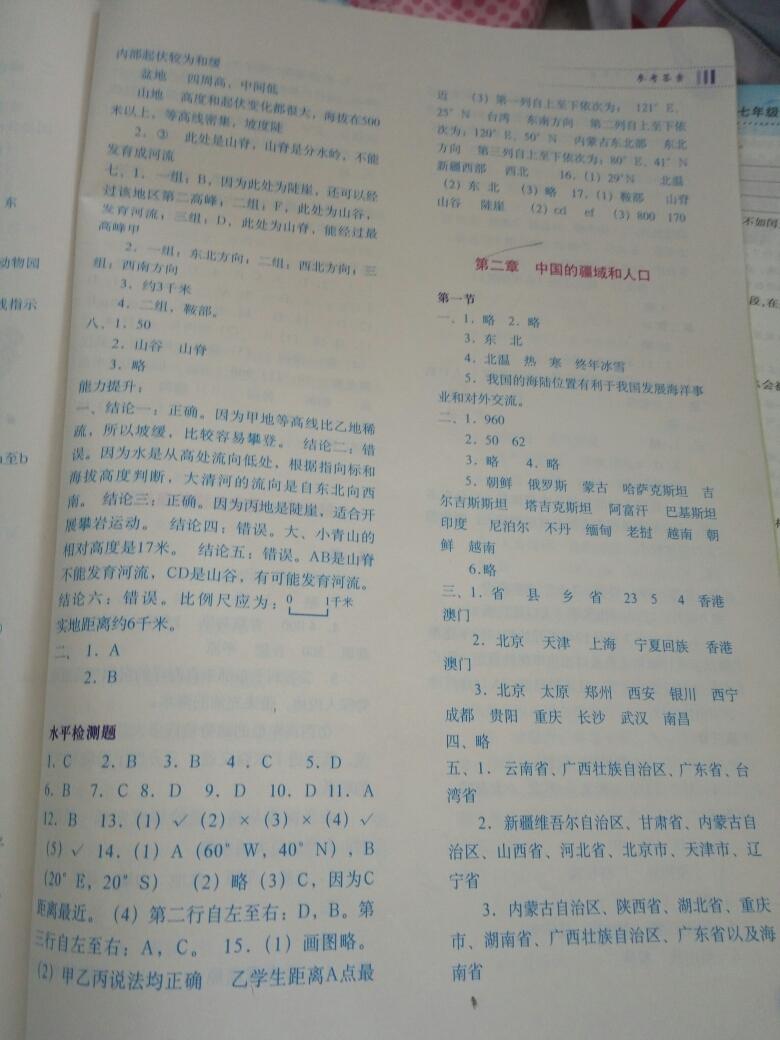 内部起伏较为和缓
盆地 四周高，中间低
山地 高度和起伏变化都很大，海拔在500
米以上，等高线密集，坡度陡
2．③ 此处是山脊，山脊是分水岭，不能
发育成河流
七、1．一组：B，因为此处为陡崖，还可以经
过该地区第二高峰；二组：F，此处为山谷，
发育河流；三组：D，此处为山脊，能经过最
高峰甲
2．一组：东北方向；二组：西北方向；三
组：西南方向
3．约3千米
4．二组，鞍部。
八、1．50
2．山谷 山脊
3．略
能力提升：
一、结论一：正确。因为甲地等高线比乙地稀
疏，所以坡缓，比较容易攀登。 结论二：错
误。因为水是从高处流向低处，根据指向标和
海拔高度判断，大清河的流向是自东北向西
南。 结论三：正确。因为丙地是陡崖，适合开
展攀岩运动。 结论四：错误。大、小青山的
相对高度是17米。 结论五：错误。AB是山脊
不能发育河流，CD是山谷，有可能发育河流。
结论六：错误。比例尺应为：0 1千米
实地距离约6千米。
二、1．A
2．B
水平检测题
1．C 2．B 3．B 4．C 5．D
6．B 7．C 8．D 9．D 10．D 11．A
12．B 13．(1) ✓ (2) × (3) × (4) ✓
(5) ✓ 14．(1) A (60°W，40°N)，B
(20°E，20°S) (2) 略 (3) C，因为C
距离最近。 (4) 第二行自左至右：D，B。第
三行自左至右：A，C。 15．(1) 画图略。
(2) 甲乙丙说法均正确 乙学生距离A点最
参考答案
近 (3) 第一列自上至下依次为： 121°E、
25°N 台湾 东南方向 第二列自上至下依
次为：120°E、50°N 内蒙古东北部 东北
方向 第三列自上至下依次为：80°E、41°N
新疆西部 西北 16．(1) 29°N 北温
(2) 东 北 (3) 略 17．(1) 鞍部 山脊
山谷 陡崖 (2) cd ef (3) 800 170
第二章 中国的疆域和人口
第一节
一、1．略 2．略
3．东 北
4．北温 热 寒 终年冰雪
5．我国的海陆位置有利于我国发展海洋事
业和对外交流。
二、1．960
2．50 62
3．略 4．略
5．朝鲜 俄罗斯 蒙古 哈萨克斯坦 吉
尔吉斯斯坦 塔吉克斯坦 阿富汗 巴基斯坦
印度 尼泊尔 不丹 缅甸 老挝 越南 朝
鲜 越南
6.略
三、1．省 县 乡 省 23 5 4 香港
澳门
2．北京 天津 上海 宁夏回族 香港
澳门
3．北京 太原 郑州 西安 银川 西宁
成都 贵阳 重庆 长沙 武汉 南昌
四、略
五、1．云南省、广西壮族自治区、广东省、台
湾省
2．新疆维吾尔自治区、甘肃省、内蒙古自
治区、山西省、河北省、北京市、天津市、辽
宁省
3．内蒙古自治区、陕西省、湖北省、重庆
市、湖南省、广西壮族自治区、广东省以及海
南省
东
动物园
线指示
至b
七年级
不如闵
段,在